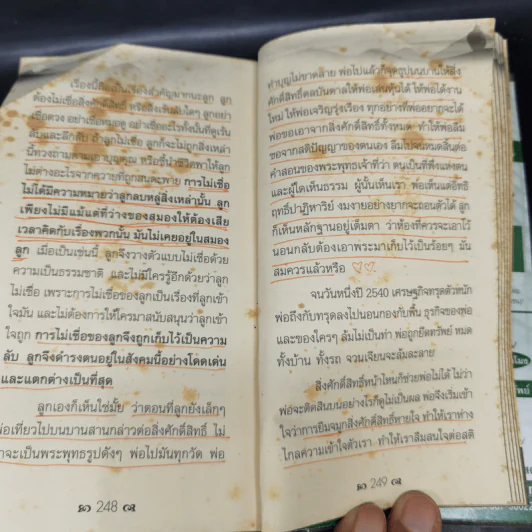 เรื่องนี้ถือเป็นเรื่องสำคัญมากนะลูก ลูก
ต้องไม่เชื่อสิ่งศักดิ์สิทธิ์ หรือสิ่งเร้นลับใดๆ ลูกอย่า
เชื่อดวง อย่าเชื่อหมอดู อย่าเชื่ออะไรทั้งนั้นที่ดูเร้น
ลับและลึกลับ ถ้าลูกไม่เชื่อ ลูกก็จะไม่ถูกสิ่งเหล่า
นี้ทวงถามตามเอาบุญคุณ หรือขี่บ่าเอาพาให้ลูก
ไม่ต่างอะไรจากควายที่ถูกสนตะพาย การไม่เชื่อ
ไม่ได้มีความหมายว่าลูกลบหลู่สิ่งเหล่านั้น ลูก
เพียงไม่มีแม้แต่ที่ว่างของสมองให้ต้องเสีย
เวลาคิดกับเรื่องพวกนั้น มันไม่เคยอยู่ในสมอง
ลูก เมื่อเป็นเช่นนี้ ลูกจึงวางตัวแบบไม่เชื่อด้วย
ความเป็นธรรมชาติ และไม่มีใครรู้อีกด้วยว่าลูก
ไม่เชื่อ เพราะการไม่เชื่อของลูกเป็นเรื่องที่ลูกเข้า
ใจมัน และไม่ต้องการให้ใครมาสนับสนุนว่าลูกเข้า
ใจถูก การไม่เชื่อของลูกจึงถูกเก็บไว้เป็นความ
ลับ ลูกจึงดำรงตนอยู่ในสังคมนี้อย่างโดดเด่น
และแตกต่างเป็นที่สุด
ลูกเองก็เห็นใช่มั้ย ว่าตอนที่ลูกยังเล็กๆ
พ่อเที่ยวไปบนบานสานกล่าวต่อสิ่งศักดิ์สิทธิ์ ไม่
ว่าจะเป็นพระพุทธรูปดังๆ พ่อไปมันทุกวัด พ่อ
248
ทำบุญไม่ขาดสาย พ่อไปแล้วก็จุดธูปบนบานให้สิ่ง
ศักดิ์สิทธิ์ดลบันดาลให้พ่อเล่นหุ้นได้ ให้พ่อได้งาน
ใหม่ ให้พ่อเจริญรุ่งเรือง ทุกอย่างที่พ่ออยากจะได้
พ่อขอเอาจากสิ่งศักดิ์สิทธิ์ทั้งหมด ทำให้พ่อลืม
ขอจากสติปัญญาของตนเอง ลืมไปจนหมดสิ้นต่อ
คำสอนของพระพุทธเจ้าที่ว่า ตนเป็นที่พึ่งแห่งตน
และผู้ใดเห็นธรรม ผู้นั้นเห็นเรา พ่อเห็นแต่อิทธิ
ฤทธิ์ปาฏิหาริย์ งมงายอย่างยากจะถอนตัวได้ ลูก
ก็เห็นหลักฐานอยู่เต็มตา ว่าห้องที่ควรจะเอาไว้
นอนกลับต้องเอาพระมาเก็บไว้เป็นร้อยๆ มัน
สมควรแล้วหรือ ♡♡
จนวันหนึ่งปี 2540 เศรษฐกิจทรุดตัวหนัก
พ่อถึงกับทรุดลงไปนอนกองกับพื้น ธุรกิจของพ่อ
และของใครๆ ล้มไม่เป็นท่า พ่อถูกยึดทรัพย์ หมด
ทั้งบ้าน ทั้งรถ จวนเจียนจะล้มละลาย
สิ่งศักดิ์สิทธิ์หน้าไหนก็ช่วยพ่อไม่ได้ ไม่ว่า
พ่อจะติดสินบนอย่างไรก็ดูไม่เป็นผล พ่อจึงเริ่มเข้า
ใจว่าการยืมจมูกสิ่งศักดิ์สิทธิ์หายใจ ทำให้เราห่าง
ไกลความเข้าใจตัวเรา ทำให้เราลืมสนใจต่อสติ
249